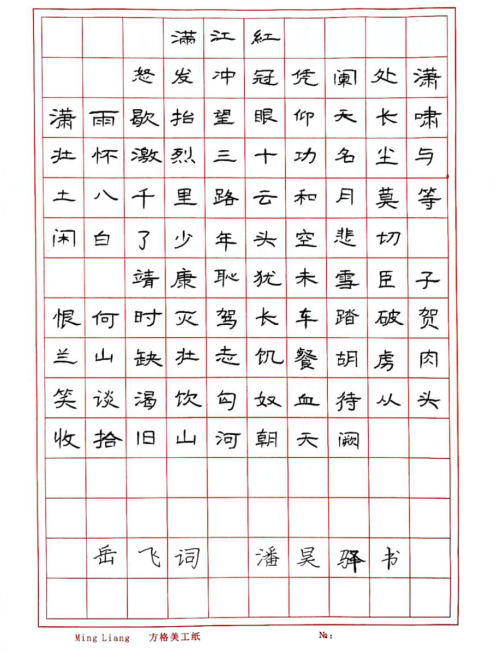 满江红
怒发冲冠凭阑处潇
潇雨歇抬望眼仰天长啸
壮怀激烈三十功名尘与
土八千里路云和月莫等
闲白了少年头空悲切
靖康耻犹未雪臣子
恨何时灭驾长车踏破贺
兰山缺壮志饥餐胡虏肉
笑谈渴饮匈奴血待从头
收拾旧山河朝天阙
岳飞词 潘昊驿书
Ming Liang 方格美工纸 №: